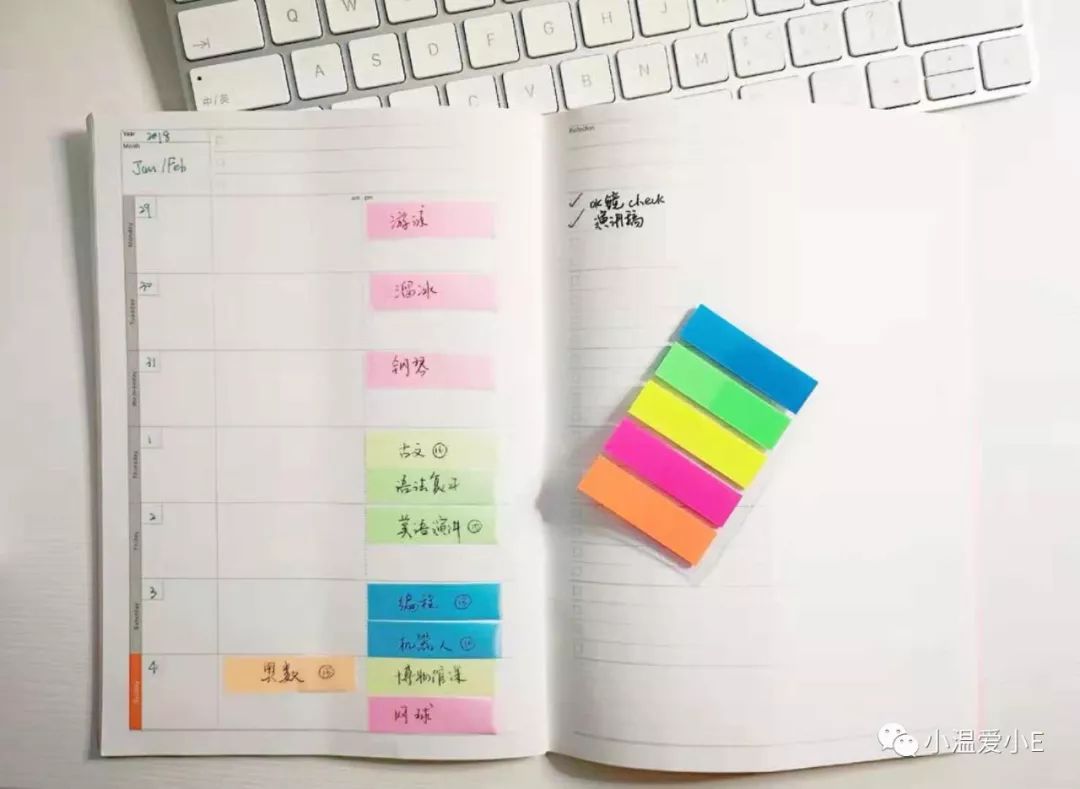 Q W
G H J
A S D F
中/英
C V B N M
Year 2018
Month
Jan/Feb
am pm
Reflection
✓ 水镜 check
✓ 演讲稿
Monday 29 游泳
Tuesday 30 溜冰
Wednesday 31 钢琴
Thursday 1 古文 ⑮
语法复习
Friday 2 英语演讲
Saturday 3 编程 ⑮
机器人
Sunday 4 奥数 ⑮ 博物馆课
网球
小温爱小E